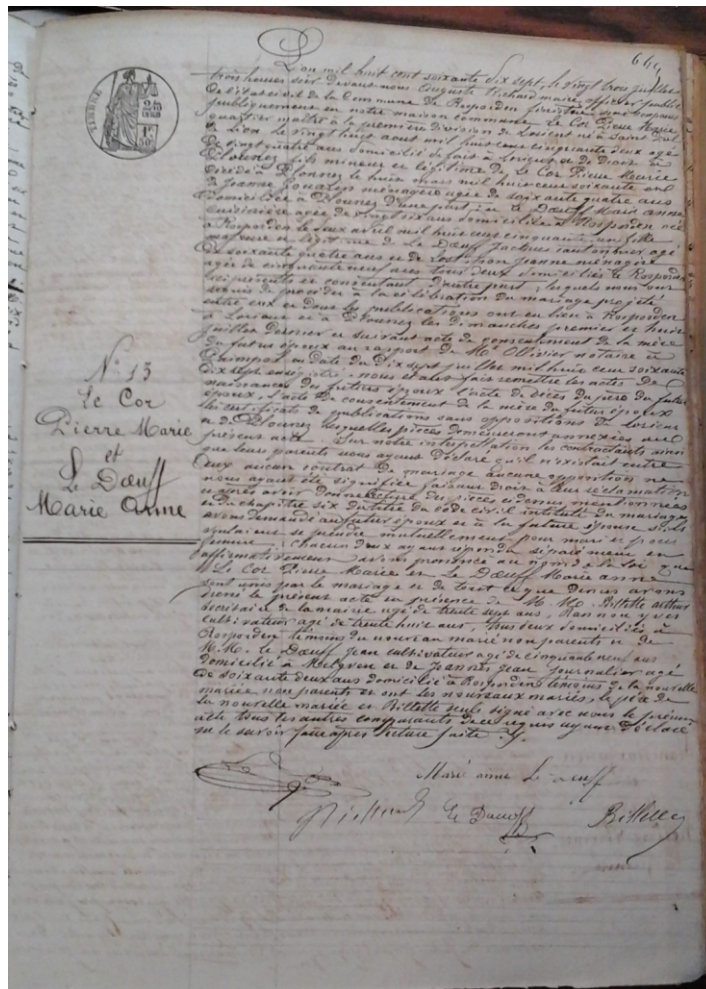 644
TIMBRE
2 10
1F 50
N° 13
Le Cor
Pierre Marie
et
Le Dœuff
Marie Anne
L'an mil huit cent soixante dix sept, le vingt trois juillet
trois heures soir devant nous Auguste Richard maire, officier public
de l'état civil de la Commune de Rosporden finistère, sont comparus
publiquement en notre maison commune Le Cor Pierre Marie
quartier maître à la première division de Lorient né à Saint Pol
de Léon le vingt huit aout mil huit cent cinquante deux agé
de vingt quatre ans domicilié de fait à Lorient et de droit à
Plounez fils mineur et légitime de Le Cor Pierre Maurice
décédé à Plounez le huit mars mil huit cent soixante et
de Jeanne ménagère agée de soixante quatre ans
domiciliée à Plounez d'une part ; et Le Dœuff Marie anne
cuisinière agée de vingt six ans domiciliée à Rosporden née
à Rosporden le deux avril mil huit cent cinquante un fille
majeure et légitime de Le Dœuff Jacques cantonnier agé
de soixante quatre ans et de Jeanne ménagère
agée de cinquante neuf ans tous deux domiciliés à Rosporden
ici présents et consentant d'autre part ; lesquels nous ont
requis de procéder à la célébration du mariage projeté
entre eux et dont les publications ont eu lieu à Rosporden
à Lorient et à Plounez les dimanches premier et huit
juillet dernier et suivant acte de consentement de la mère
du futur époux au rapport de Me Ollivier notaire à
Paimpol en date du dix sept juillet mil huit cent soixante
dix sept enregistré, nous étant fait remettre les actes de
naissances des futurs époux l'acte de décès du père du futur
époux, l'acte de consentement de la mère du futur époux
les certificats de publications sans oppositions de Lorient
et de Plounez lesquelles pièces demeureront annexées au
présent acte. Sur notre interpellation les contractants ainsi
que leurs parents nous ayant déclaré qu'il n'existait entre
eux aucun contrat de mariage aucune opposition ne
nous ayant été signifiée faisant droit à leur réclamation
après avoir donné lecture des pièces ci dessus mentionnées
et du chapitre six du titre du code civil intitulé du mariage
avons demandé au futur époux et à la future épouse s'ils
voulaient se prendre mutuellement pour mari et pour
femme ; chacun d'eux ayant répondu séparément et
affirmativement avons prononcé au nom de la loi que
Le Cor Pierre Marie et Le Dœuff Marie anne
sont unis par le mariage et de tout ce que dessus avons
dressé le présent acte en présence de M. M. Billette arthur
secrétaire de la mairie agé de trente sept ans, yves
cultivateur agé de trente huit ans, tous deux domiciliés à
Rosporden témoins du nouveau marié non parents et de
M. M. Le Dœuff Jean cultivateur agé de cinquante neuf ans
domicilié à Melgven et de Jean journalier agé
de soixante deux ans domicilié à Rosporden témoins de la nouvelle
mariée non parents et ont les nouveaux mariés, le père de
la nouvelle mariée et Billette seuls signé avec nous le présent
acte tous les autres comparants de ce requis ayant déclaré
ne le savoir faire après lecture faite
Marie anne Le Dœuff
Le Dœuff
Billette